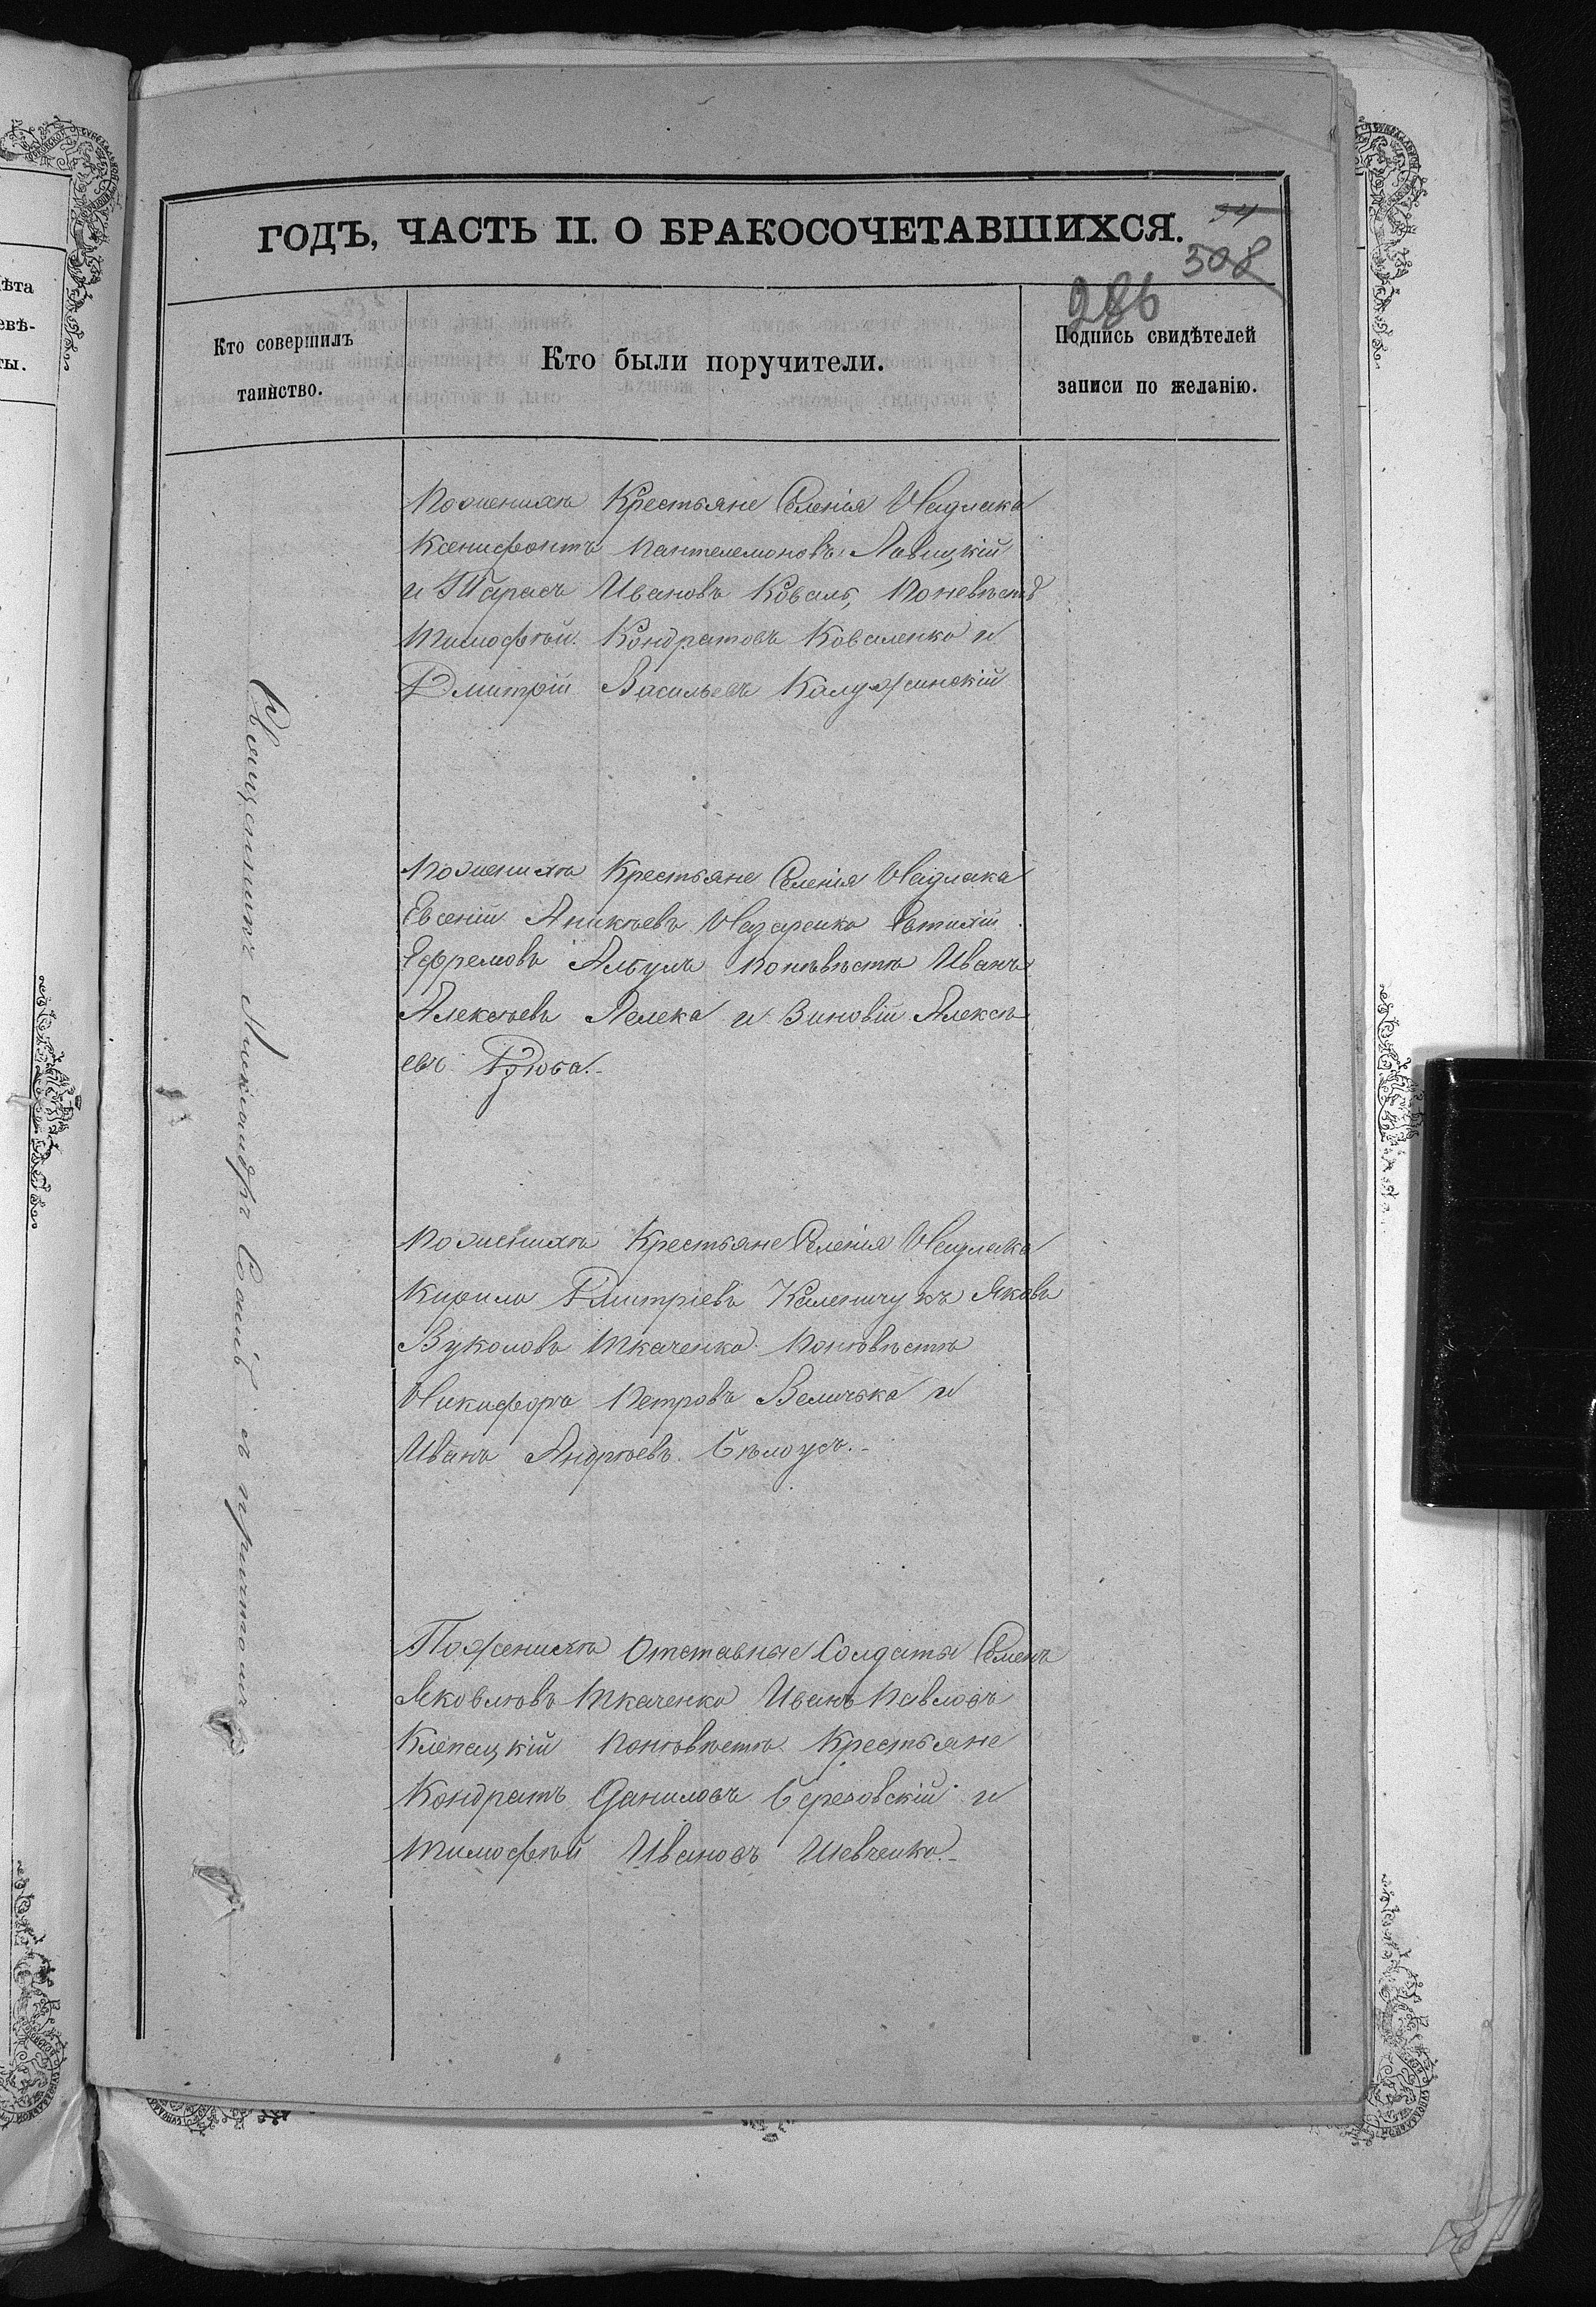 ГОДЪ, ЧАСТЬ II. О БРАКОСОЧЕТАВШИХСЯ.
54
508
286
Кто совершилъ
таинство.
Кто были поручители.
Подпись свидѣтелей
записи по желанію.
Пожениха Крестьяне Селенія Надлака
Ксенифонтъ Пантелемоновъ Левицкій
и Тарасъ Ивановъ Коваль, Поневѣстѣ
Тимофѣй Кондратовъ Коваленко и
Дмитрій Васильевъ Калужинскій
Поженихѣ Крестьяне Селенія Надлака
Евсеній Аникѣевъ Назаренко Евтихій
Ефремовъ Албулъ Поневѣстѣ Иванъ
Алексѣевъ Лелека и Зиновій Алексѣ
евъ Дзюба.-
Поженихѣ Крестьяне Селенія Надлака
Кирило Дмитріевъ Каленичукъ Яковъ
Вуколовъ Ткаченко Поневѣстѣ
Никифоръ Петровъ Величка и
Иванъ Андрѣевъ Бѣлоусъ.-
Поженихѣ Отставные Солдаты Семенъ
Яковлѣвъ Ткаченко Иванъ Павловъ
Клепацкій Поневѣстѣ Крестьяне
Кондратъ Даниловъ Березовскій и
Тимофѣй Ивановъ Шевченко.-
Священникъ Александръ с причтомъ
ѣта
евѣ-
ты.